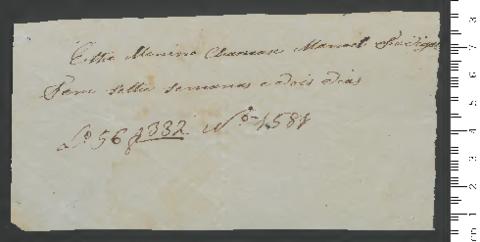 Este Menino Chamase Manoel
Tem sette semanas e dois dias
Lº 56 f 332 Nº 1581